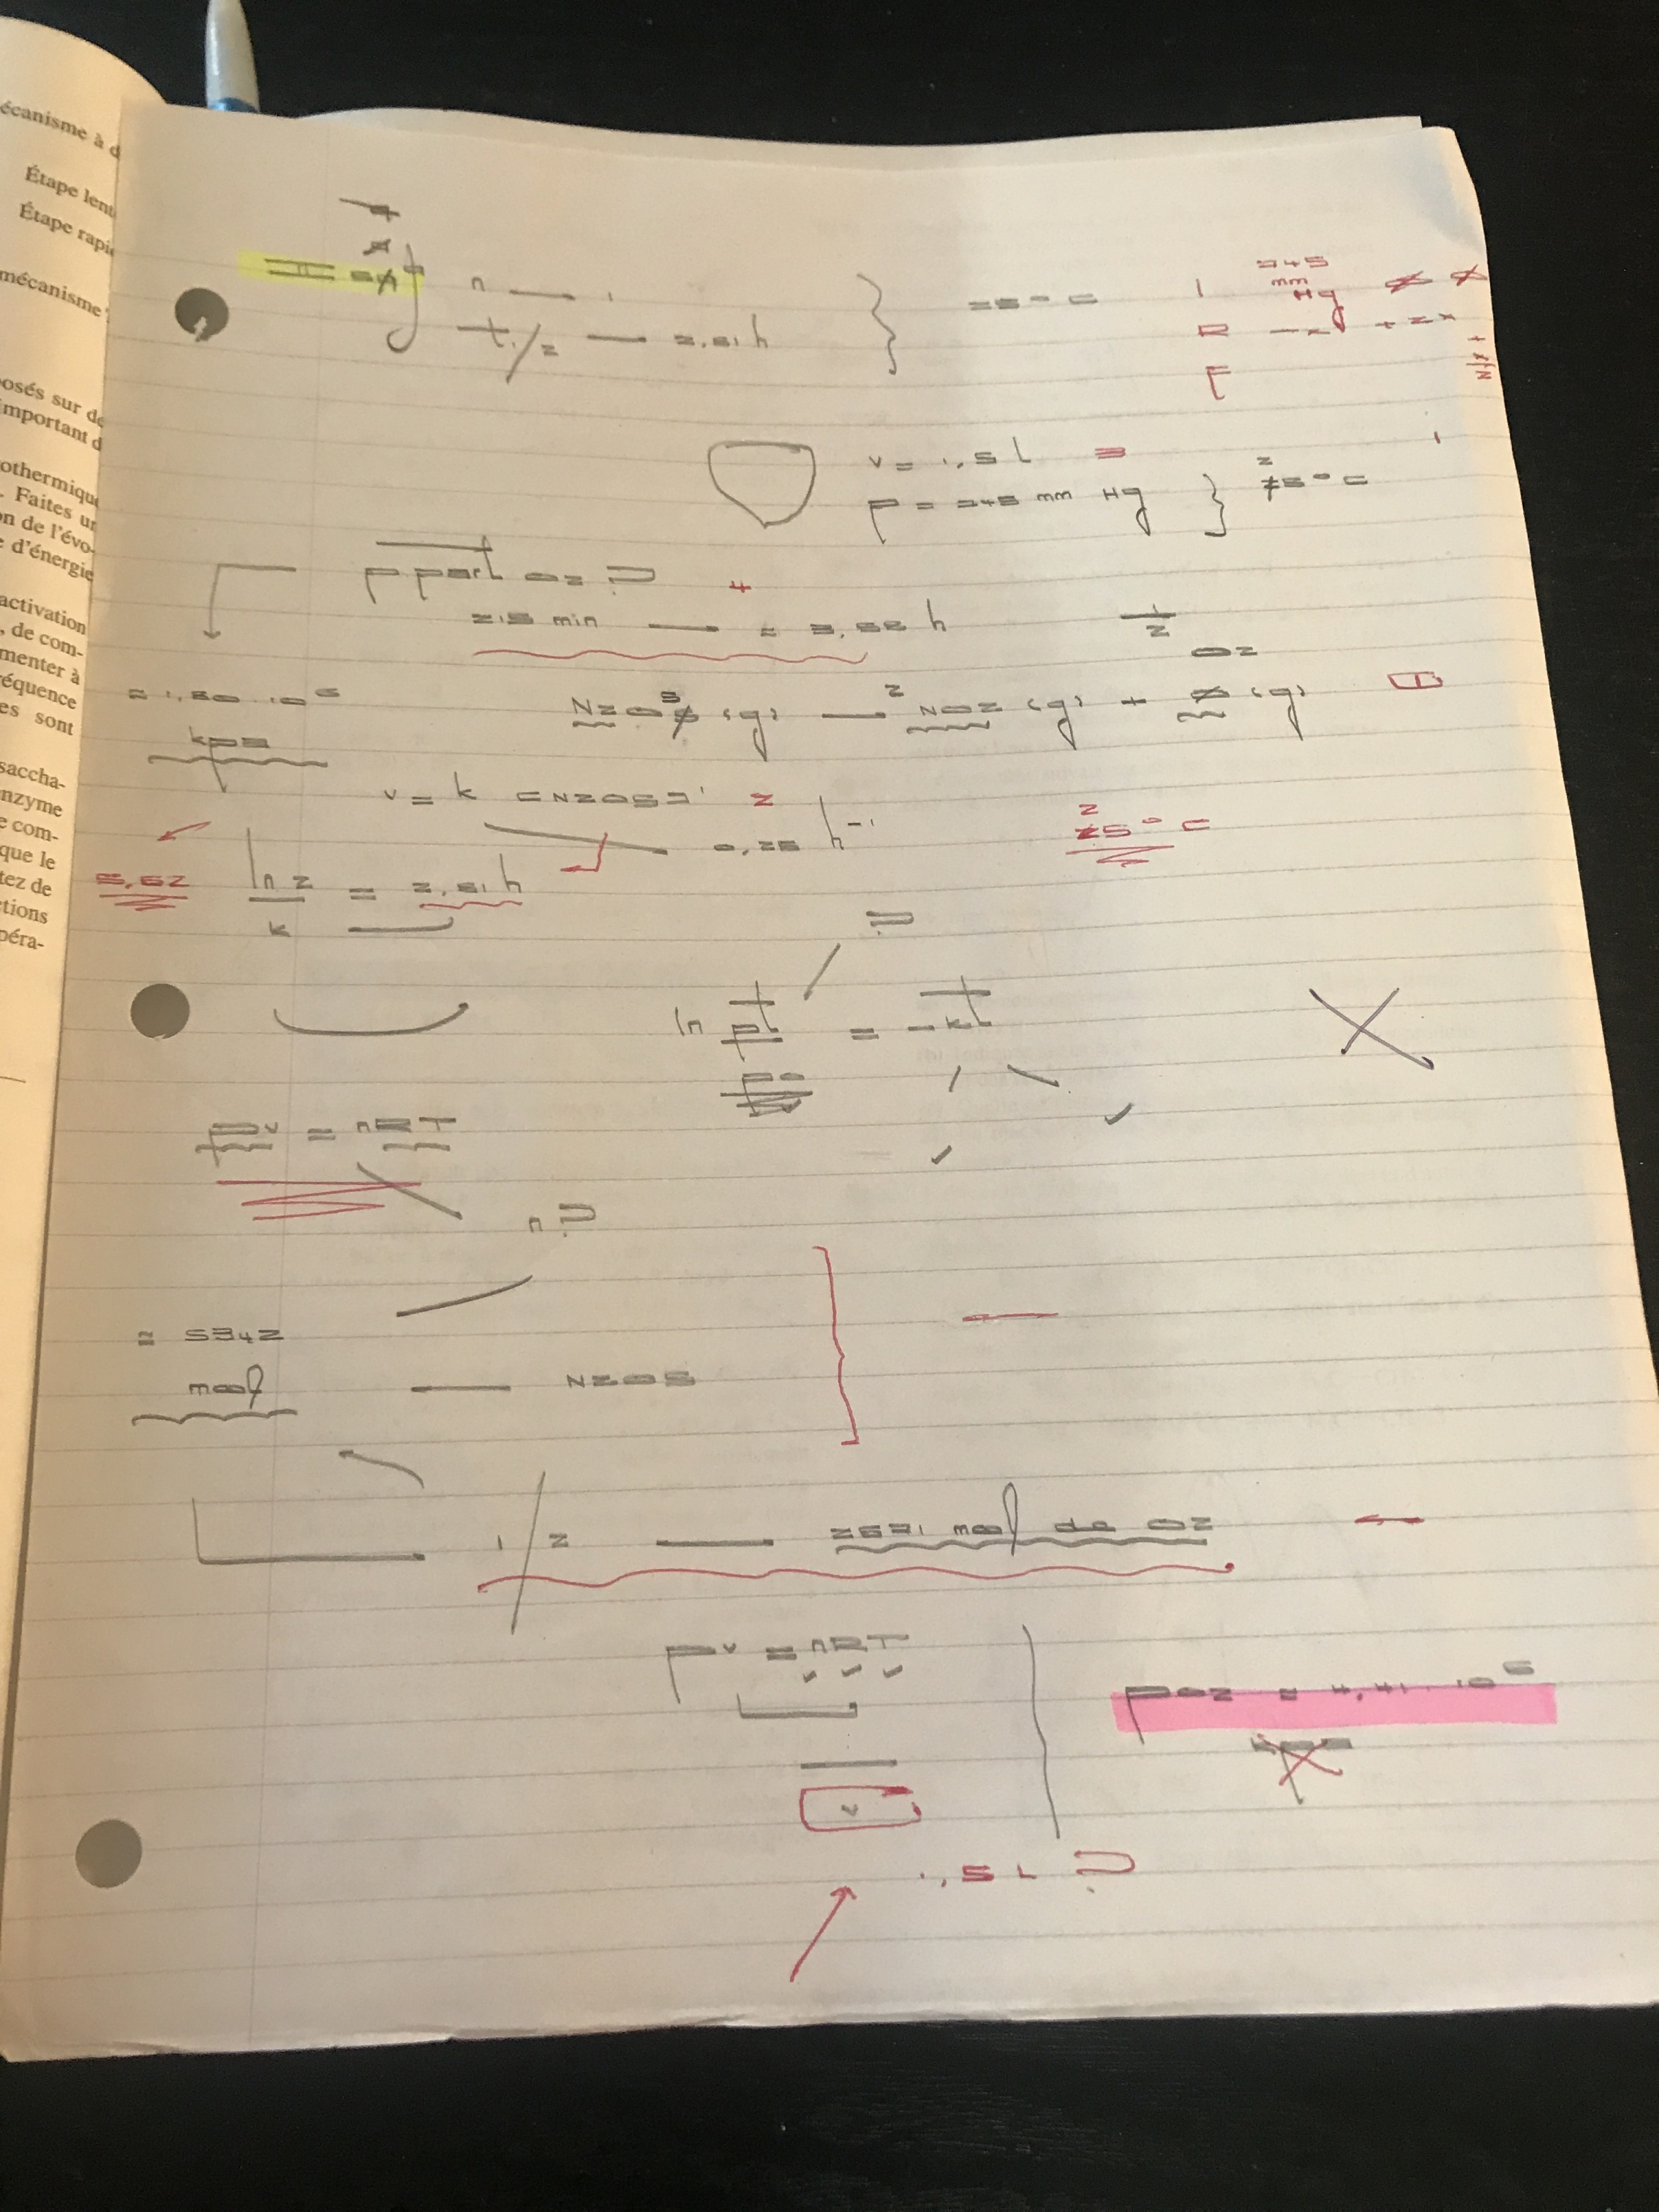 écanisme à d
Étape lent
Étape rapi
mécanisme
posés sur de
important d
othermiqu
. Faites un
on de l'évo-
e d'énergie
activation
, de com-
menter à
réquence
es sont
saccha-
nzyme
e com-
que le
tez de
ctions
péra-
n — 1
t1/2 — 2,81 h
25°C
I 245 mm Hg
R -x +2x
F
V = 1,5 L
P = 245 mm Hg } 25°C
P part O2 ?
215 min — ≈ 3,58 h
1/2
O2
N2O5 (g) — 2 NO2 (g) + (g)
kpa
v = k [N2O5]1
0,25 h-1
25°C
ln 2 = 2,81 h
k
?
ln pt = -kt
po
PV = nRT
n ?
≈ 5342
mol — N2O5
1/2 — 2671 mol de O2
PV = nRT
V
PO2 ≈ 4,41 · 10 6
1,5 L ?